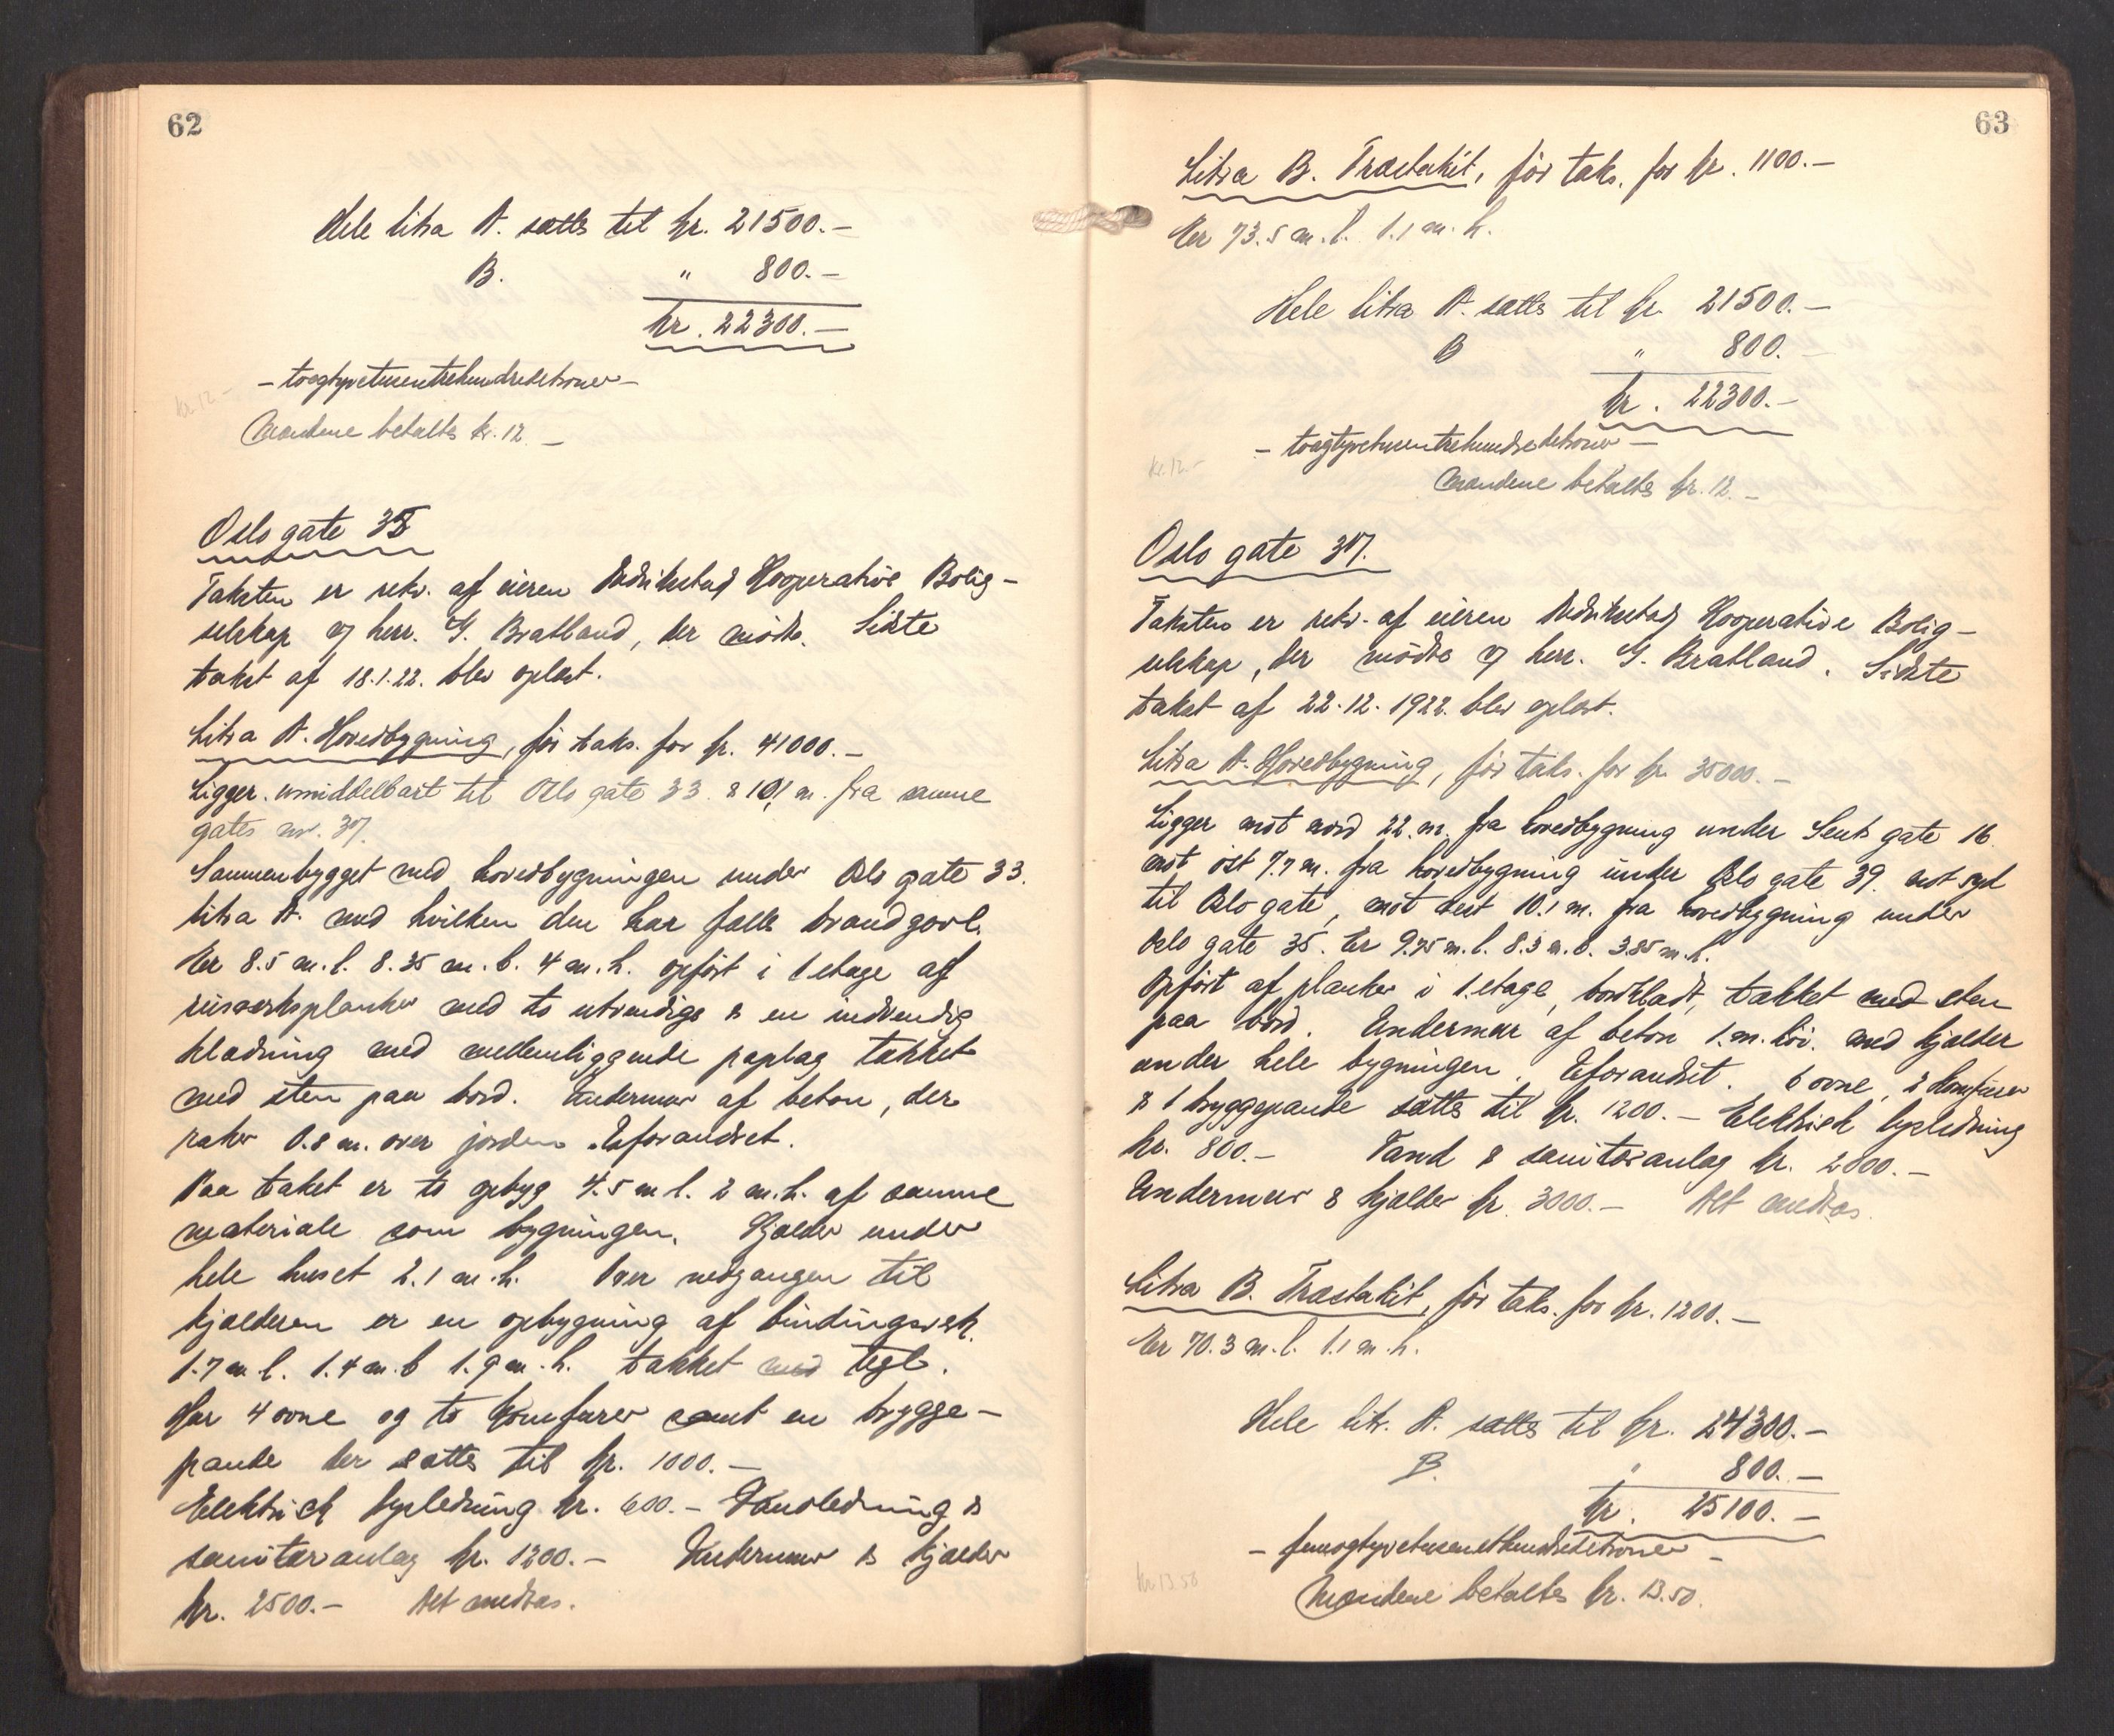 62
Hele litra A. sættes til kr. 21500.-
B. " 800.-
kr. 22300.-
- toogtyvetusentrehundredekroner -
kr. 12 -
Mændene betaltes kr. 12 -
Oslo gate 35
Taksten er rekv. af eieren Fredrikstad Kooperative Bolig-
selskap og herr. G. Bratland, der mødte. Sidste
takst af 18.1.22. blev oplæst.
Litra A. Hovedbygning, før taks. for kr. 41000.-
Ligger umiddelbart til Oslo gate 33 & 10,1 m. fra samme
gates nr. 37.
Sammenbygget med hovedbygningen under Oslo gate 33.
litra A. med hvilken den har fælles brandgavl.
Er 8.5 m.l. 8.35 m.b. 4 m.h. opført i 1 etage af
reisverksplanker med to utvendige & en indvendig
klædning med mellemliggende paplag tækket
med sten paa bord. Undermur af beton, der
raker 0.8 m. over jorden. Uforandret.
Paa taket er to opbyg 4.5 m l. 2 m.h. af samme
materiale som bygningen. Kjælder under
hele huset 2.1 m.h. Over nedgangen til
kjælderen er en opbygning af bindingsverk.
1.7 m l. 1.4 m.b 1.9 m.h. tækket med tegl.
Har 4 ovne og to komfurer samt en brygge-
pande der sættes til kr. 1000.-
Elektrisk lysledning kr. 600.- Vandledning &
sanitæranlæg kr. 1200.- Undermur & kjælder
kr. 2500.- Alt medtas.
63
Litra B. Træstakit, før taks. for kr. 1100.-
Er 73.5 m.l. 1.1 m.h.
Hele litra A. sættes til kr. 21500.-
B " 800.-
kr. 22300.-
- toogtyvetusentrehundredekroner -
kr. 12.-
Mændene betaltes kr. 12.-
Oslo gate 37.
Taksten er rekv. af eieren Fredrikstad Kooperative Bolig-
selskap, der mødte og herr. G. Bratland. Sidste
takst af 22.12.1922. blev oplæst.
Litra A. Hovedbygning, før taks. for kr 35000.-
Ligger mot nord 22. m. fra hovedbygning under gate 16.
mot øst 7.7 m. fra hovedbygning under Oslo gate 39. mot syd
til Oslo gate, mot vest 10.1 m. fra hovedbygning under
Oslo gate 35. Er 9.75 m.l. 8.3 m.b. 3.85 m.h.
Opført af planker i 1. etage, bordklædt, tækket med sten
paa bord. Undermur af beton 1. m. høi. med kjælder
under hele bygningen. Uforandret. 6 ovne, 2 komfurer
& 1 bryggepande sættes til kr. 1200.- Elektrisk lysledning
kr. 800.- Vand & sanitæranlæg kr. 2000.-
Undermur & kjælder kr. 3000.- Alt medtas.
Litra B. Træstakit, før taks. for kr. 1200.-
Er 70.3 m.l. 1.1 m.h.
Hele litr. A. sættes til kr. 24300.-
B. " 800.-
kr. 25100.-
- femogtyvetusenethundredekroner -
kr 13.50
Mændene betaltes kr. 13.50.